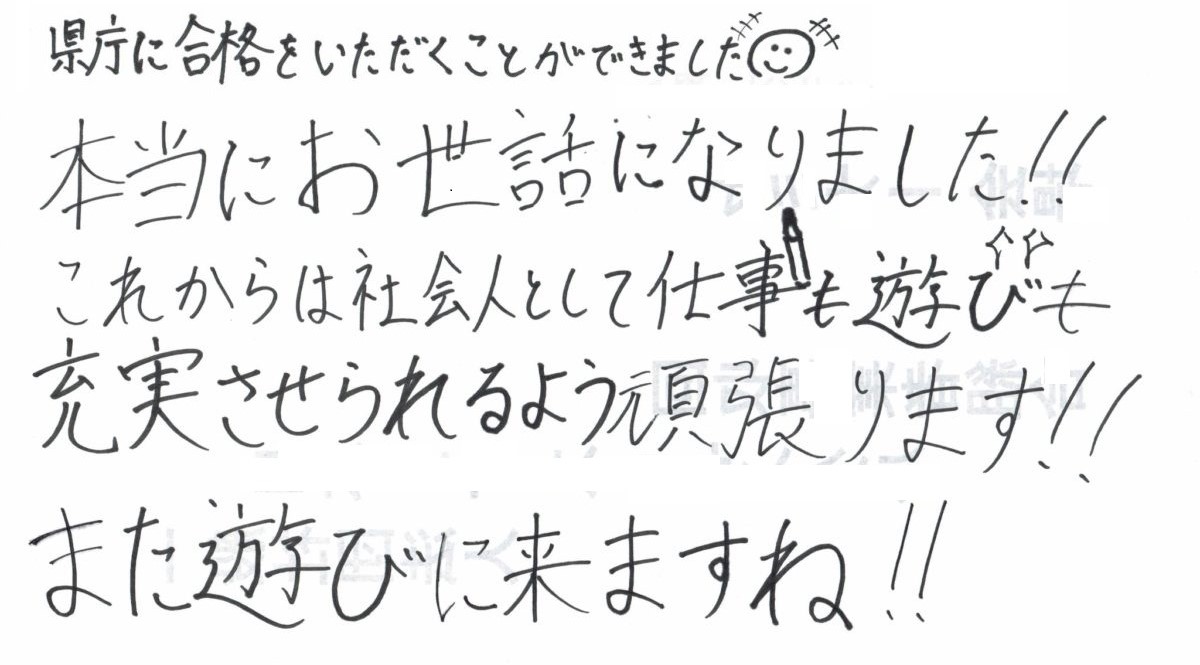 県庁に合格をいただくことができました
本当にお世話になりました!!
これからは社会人として仕事も遊びも
充実させられるよう頑張ります!!
また遊びに来ますね!!